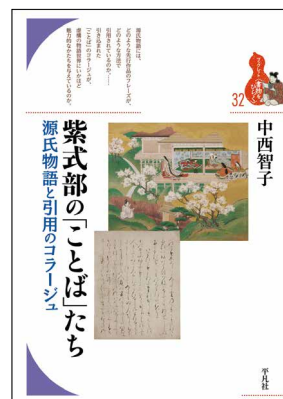 ブックレット〈書物をひらく〉
32
中西智子
紫式部の「ことば」たち
源氏物語と引用のコラージュ
源氏物語には、
どのような先行作品のフレーズが、
どのような方法で
引用されているのか。――
引き込まれた
「ことば」のコラージュが、
虚構の物語世界にいかほど
魅力的なかたちを与えているのか。
平凡社